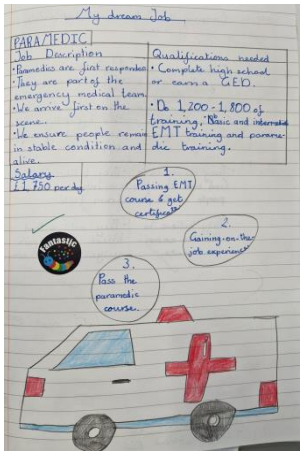 My dream Job
PARAMEDIC
Job Description
•Paramedics are first responded
•They are part of the
emergency medical team.
•We arrive first on the
scene.
•We ensure people remain
in stable condition and
alive.
Salary
£1,750 per day
Qualifications needed
•Complete high school
or earn a GED.
•Do 1,200-1,800 of
training. Basic and
EMT training and parame-
dic training.
1.
Passing EMT
course & get
certificate
2.
Gaining-on-the
job experience
Fantastic
3.
Pass the
paramedic
course.